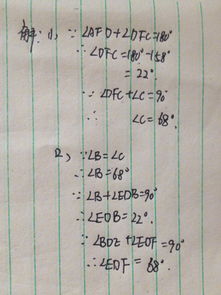 解: 1) ∵ ∠AFD+∠DFC=180°
∴ ∠DFC=180°-158°
= 22°.
∵ ∠DFC+∠C=90°
∴ ∠C=68°.
2) ∵∠B=∠C
∴∠B=68°
∵∠B+∠EDB=90°
∴∠EDB=22°.
∵ ∠BDE+∠EDF=90°
∴∠EDF=68°.